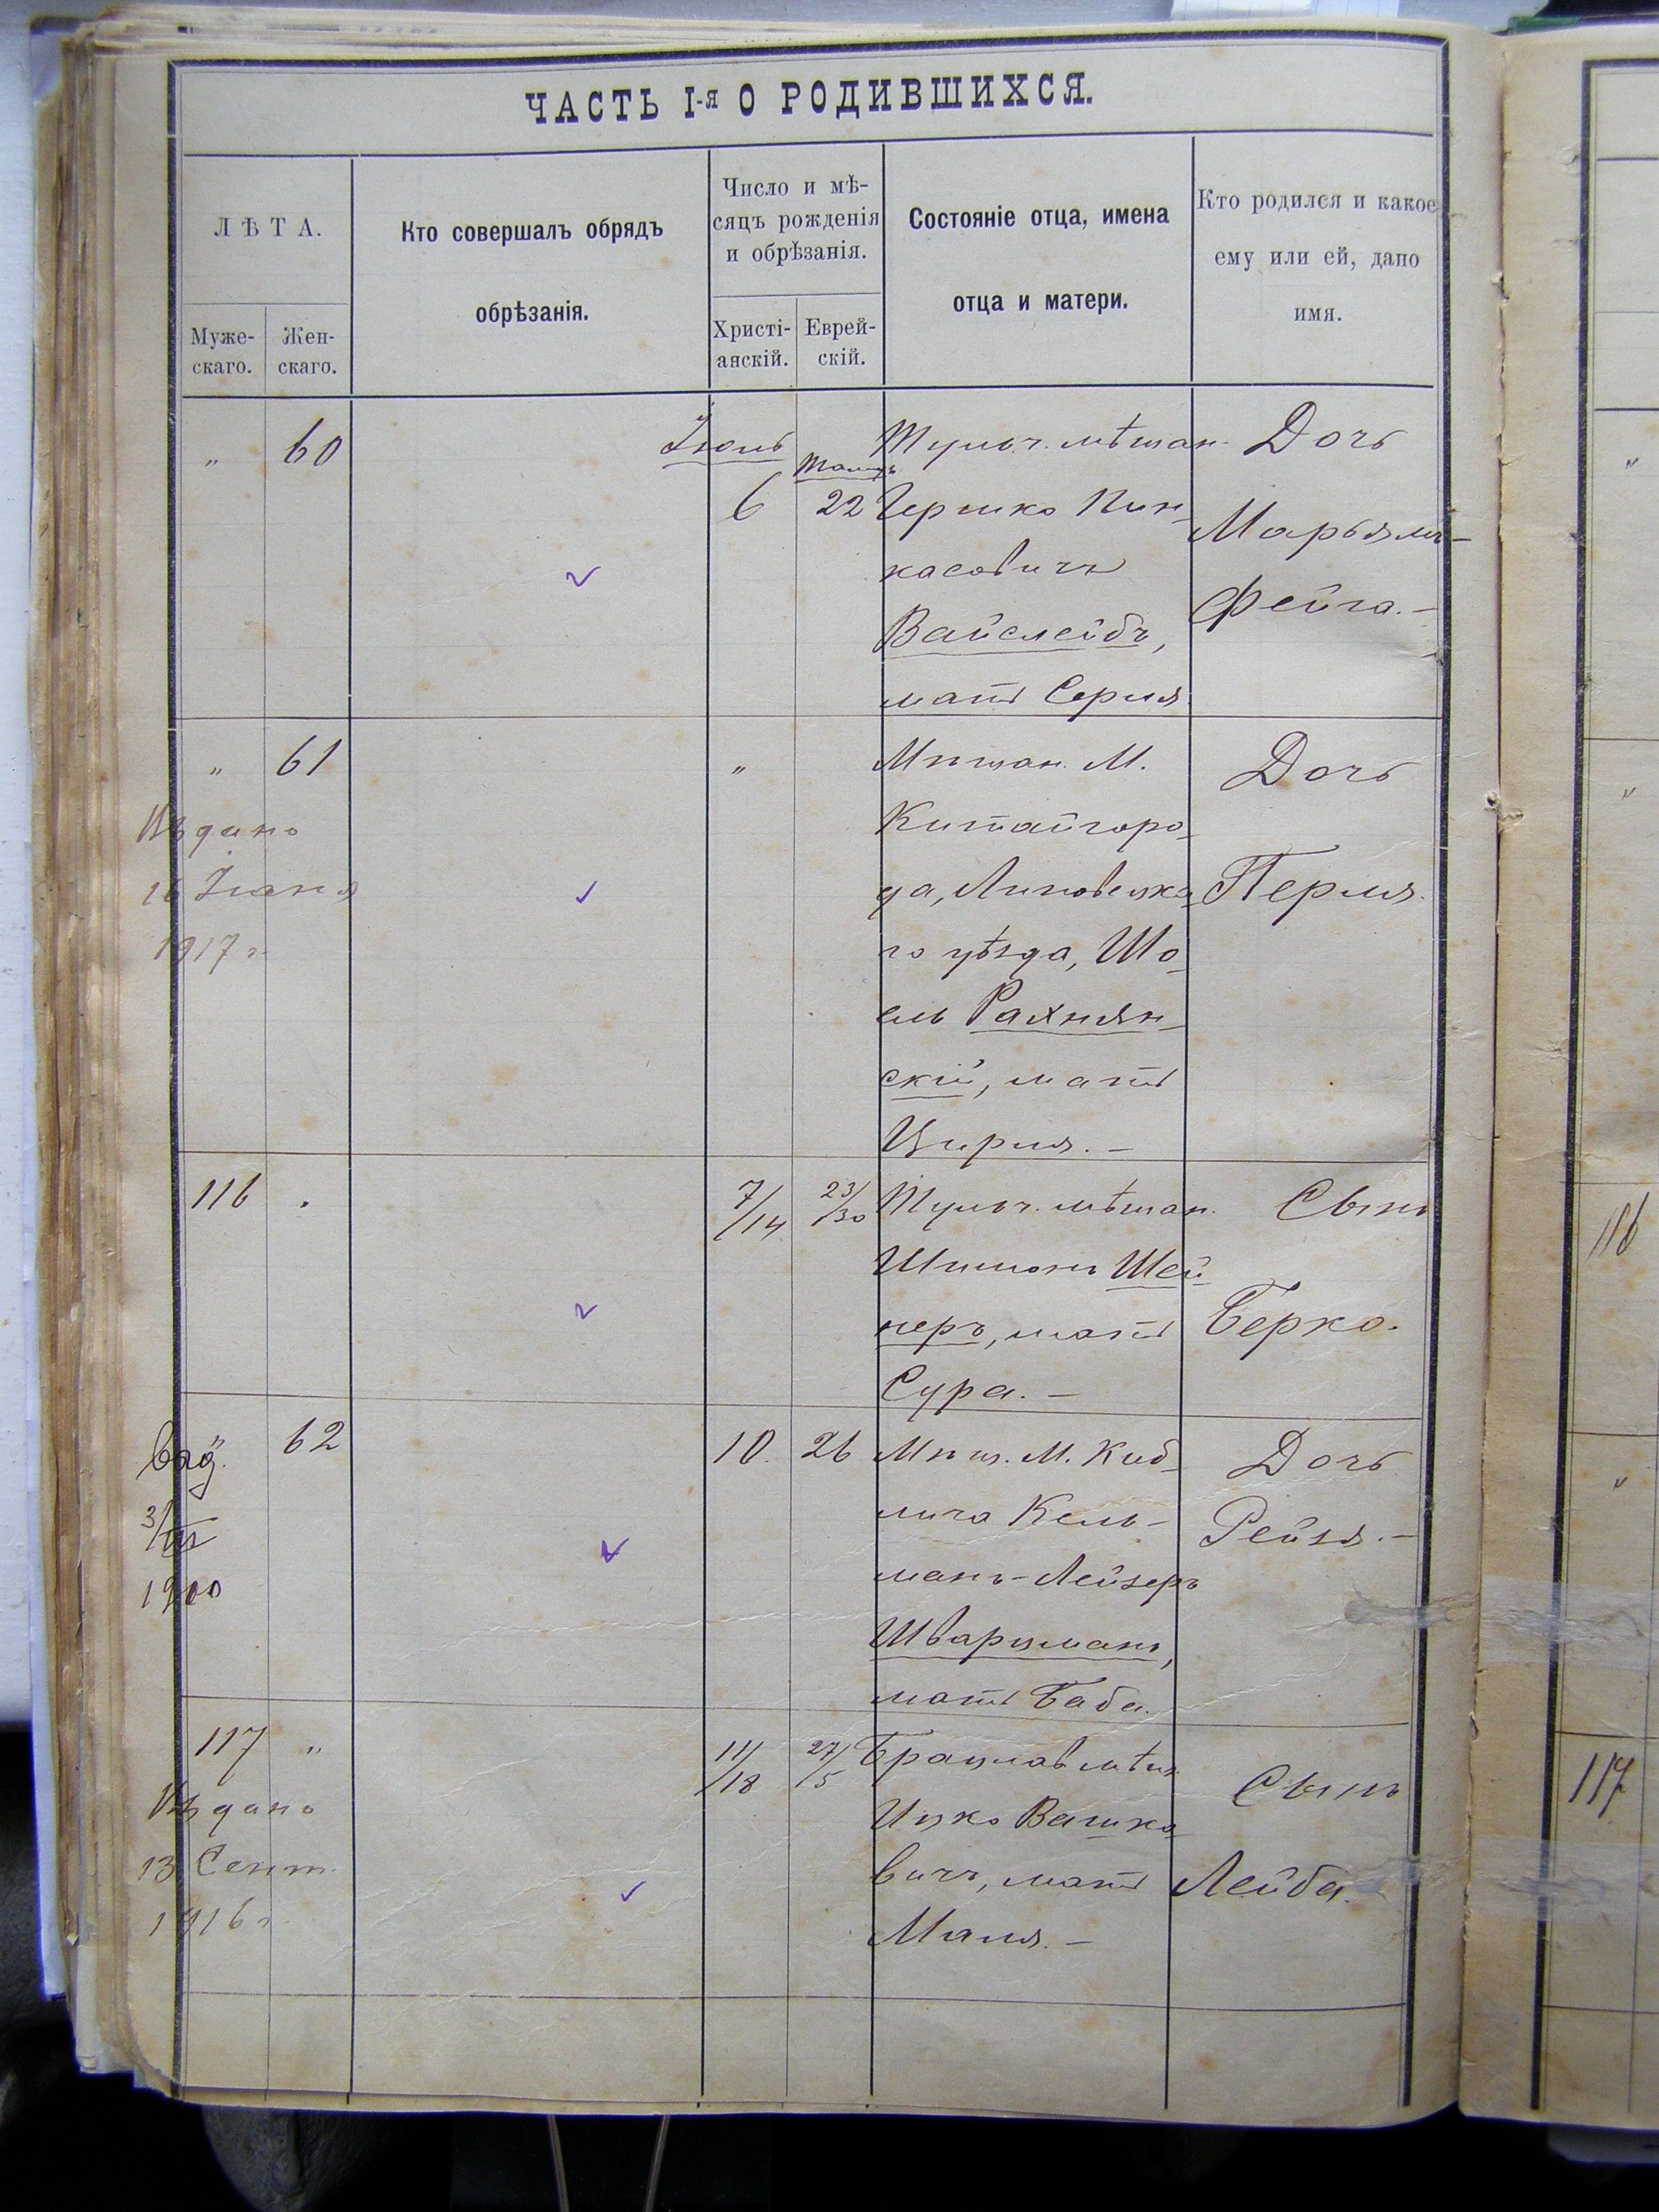 ЧАСТЬ I-я О РОДИВШИХСЯ.
ЛѢТА.
Муже-
скаго.
Жен-
скаго.
Кто совершалъ обрядъ
обрѣзанія.
Число и мѣ-
сяцъ рожденія
и обрѣзанія.
Христі-
анскій.
Еврей-
скій.
Состояніе отца, имена
отца и матери.
Кто родился и какое
ему или ей, дано
имя.
" 60
Іюль
6 22
Тульч. мѣщан.
Гершко Пин-
касовичъ
Вайслейбъ,
мать Серля
Дочь
Марьямъ-
Фейга.-
" 61
Выдано
16 Іюня
1917 г.
"
Мѣщан. М.
Китайгоро-
да, Липовецка-
го уѣзда, Шо-
ель Рахнян-
скій, мать
Цирля.-
Дочь
Перля.
116 .
7/14 23/30
Тульч. мѣщан.
Шимонъ Шей-
неръ, мать
Сура.-
Сынъ
Берко.
" 62
3/III
1900
10. 26
Мѣщ. М. Киб-
лича Кель-
манъ-Лейзеръ
Шварцманъ,
мать Баба.
Дочь
Рейзя.-
117 "
Выдано
13 Сент.
1916 г.
11/18 27/5
Брацлав мѣщ.
Ицко Вашко-
вичъ, мать
Маля.-
Сынъ
Лейба.
"
"
116
"
117